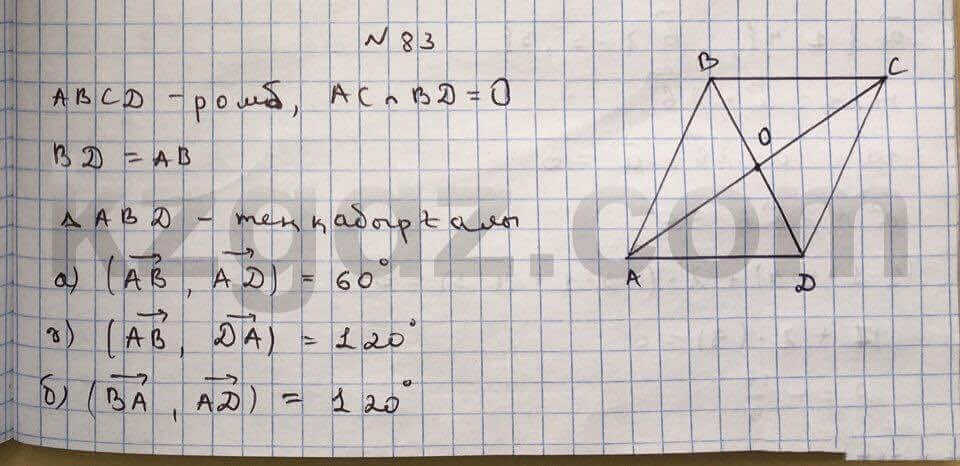 N 83
ABCD – ромб, AC ∩ BD = O
BD = AB
Δ ABD – тең қабырғалы
а) (\overrightarrow{AB}, \overrightarrow{AD}) = 60°
г) (\overrightarrow{AB}, \overrightarrow{DA}) = 120°
б) (\overrightarrow{BA}, \overrightarrow{AD}) = 120°
B
C
O
A
D
kzgdz.com